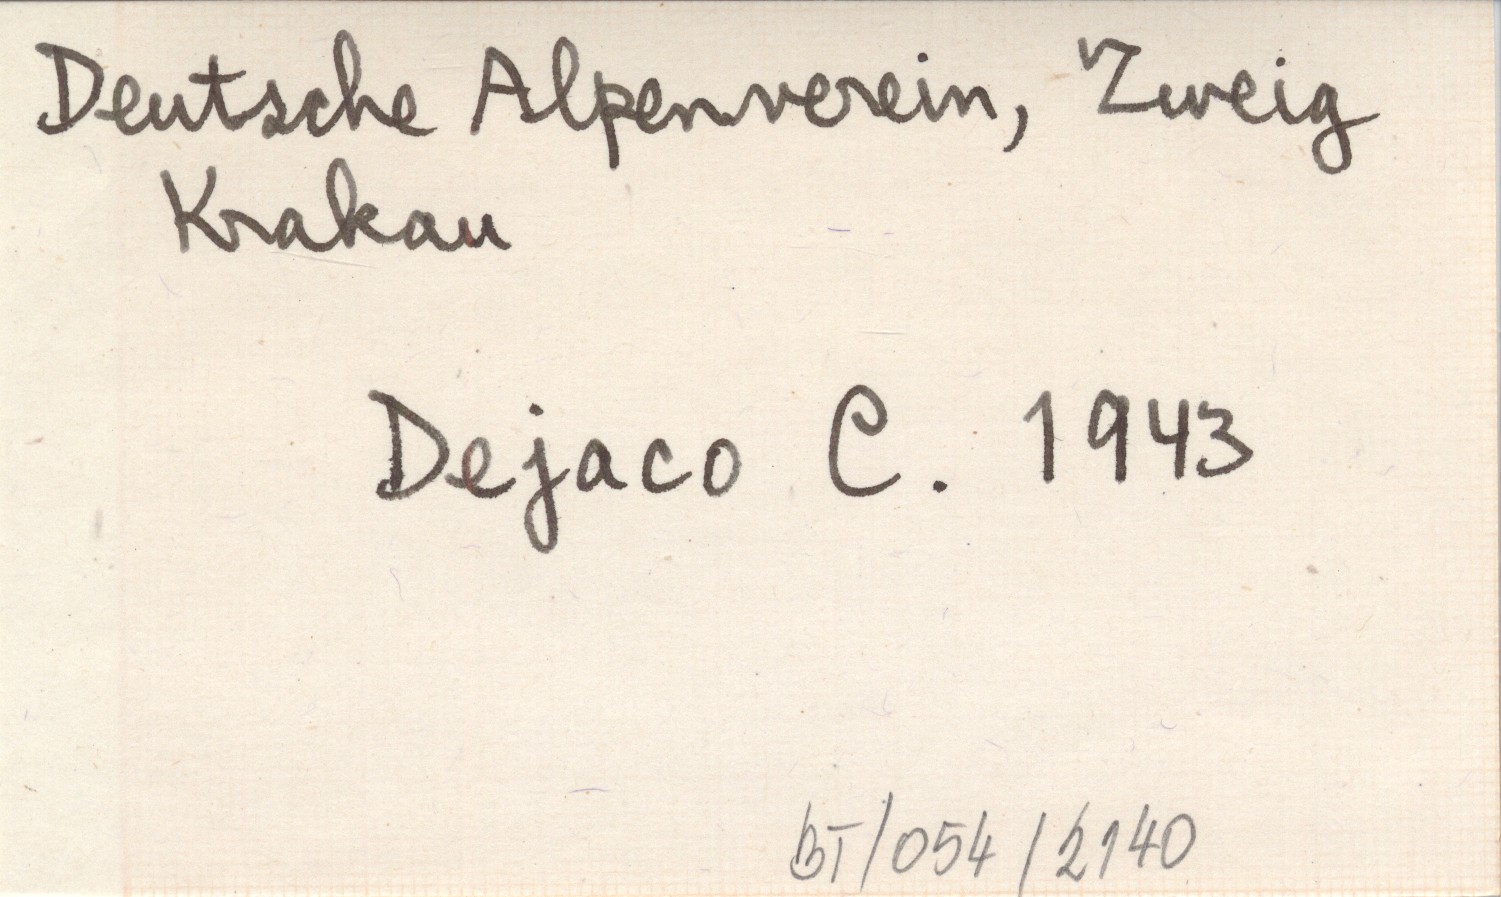 Deutsche Alpenverein, Zweig
Krakau
Dejaco C. 1943
BT/054/2140